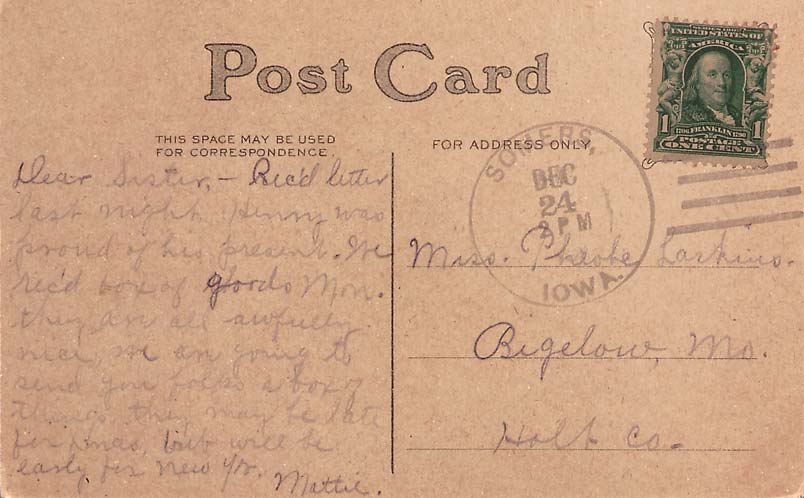 Post Card
THIS SPACE MAY BE USED
FOR CORRESPONDENCE.
FOR ADDRESS ONLY
SERIES 1902
UNITED STATES OF
AMERICA
1 1706 FRANKLIN 1790 1
POSTAGE
ONE CENT
SOMERS,
DEC
24
3 PM
IOWA.
Dear Sister, – Rec'd letter
last night. Henry was
proud of his present. We
rec'd box of goods Mon.
they are all awfully
nice, we are going to
send you folks a box of
things they may be late
for xmas but will be
early for New Yr.
Mattie.
Miss. Pheobe Larkins.
Bigelow, Mo.
Holt Co.